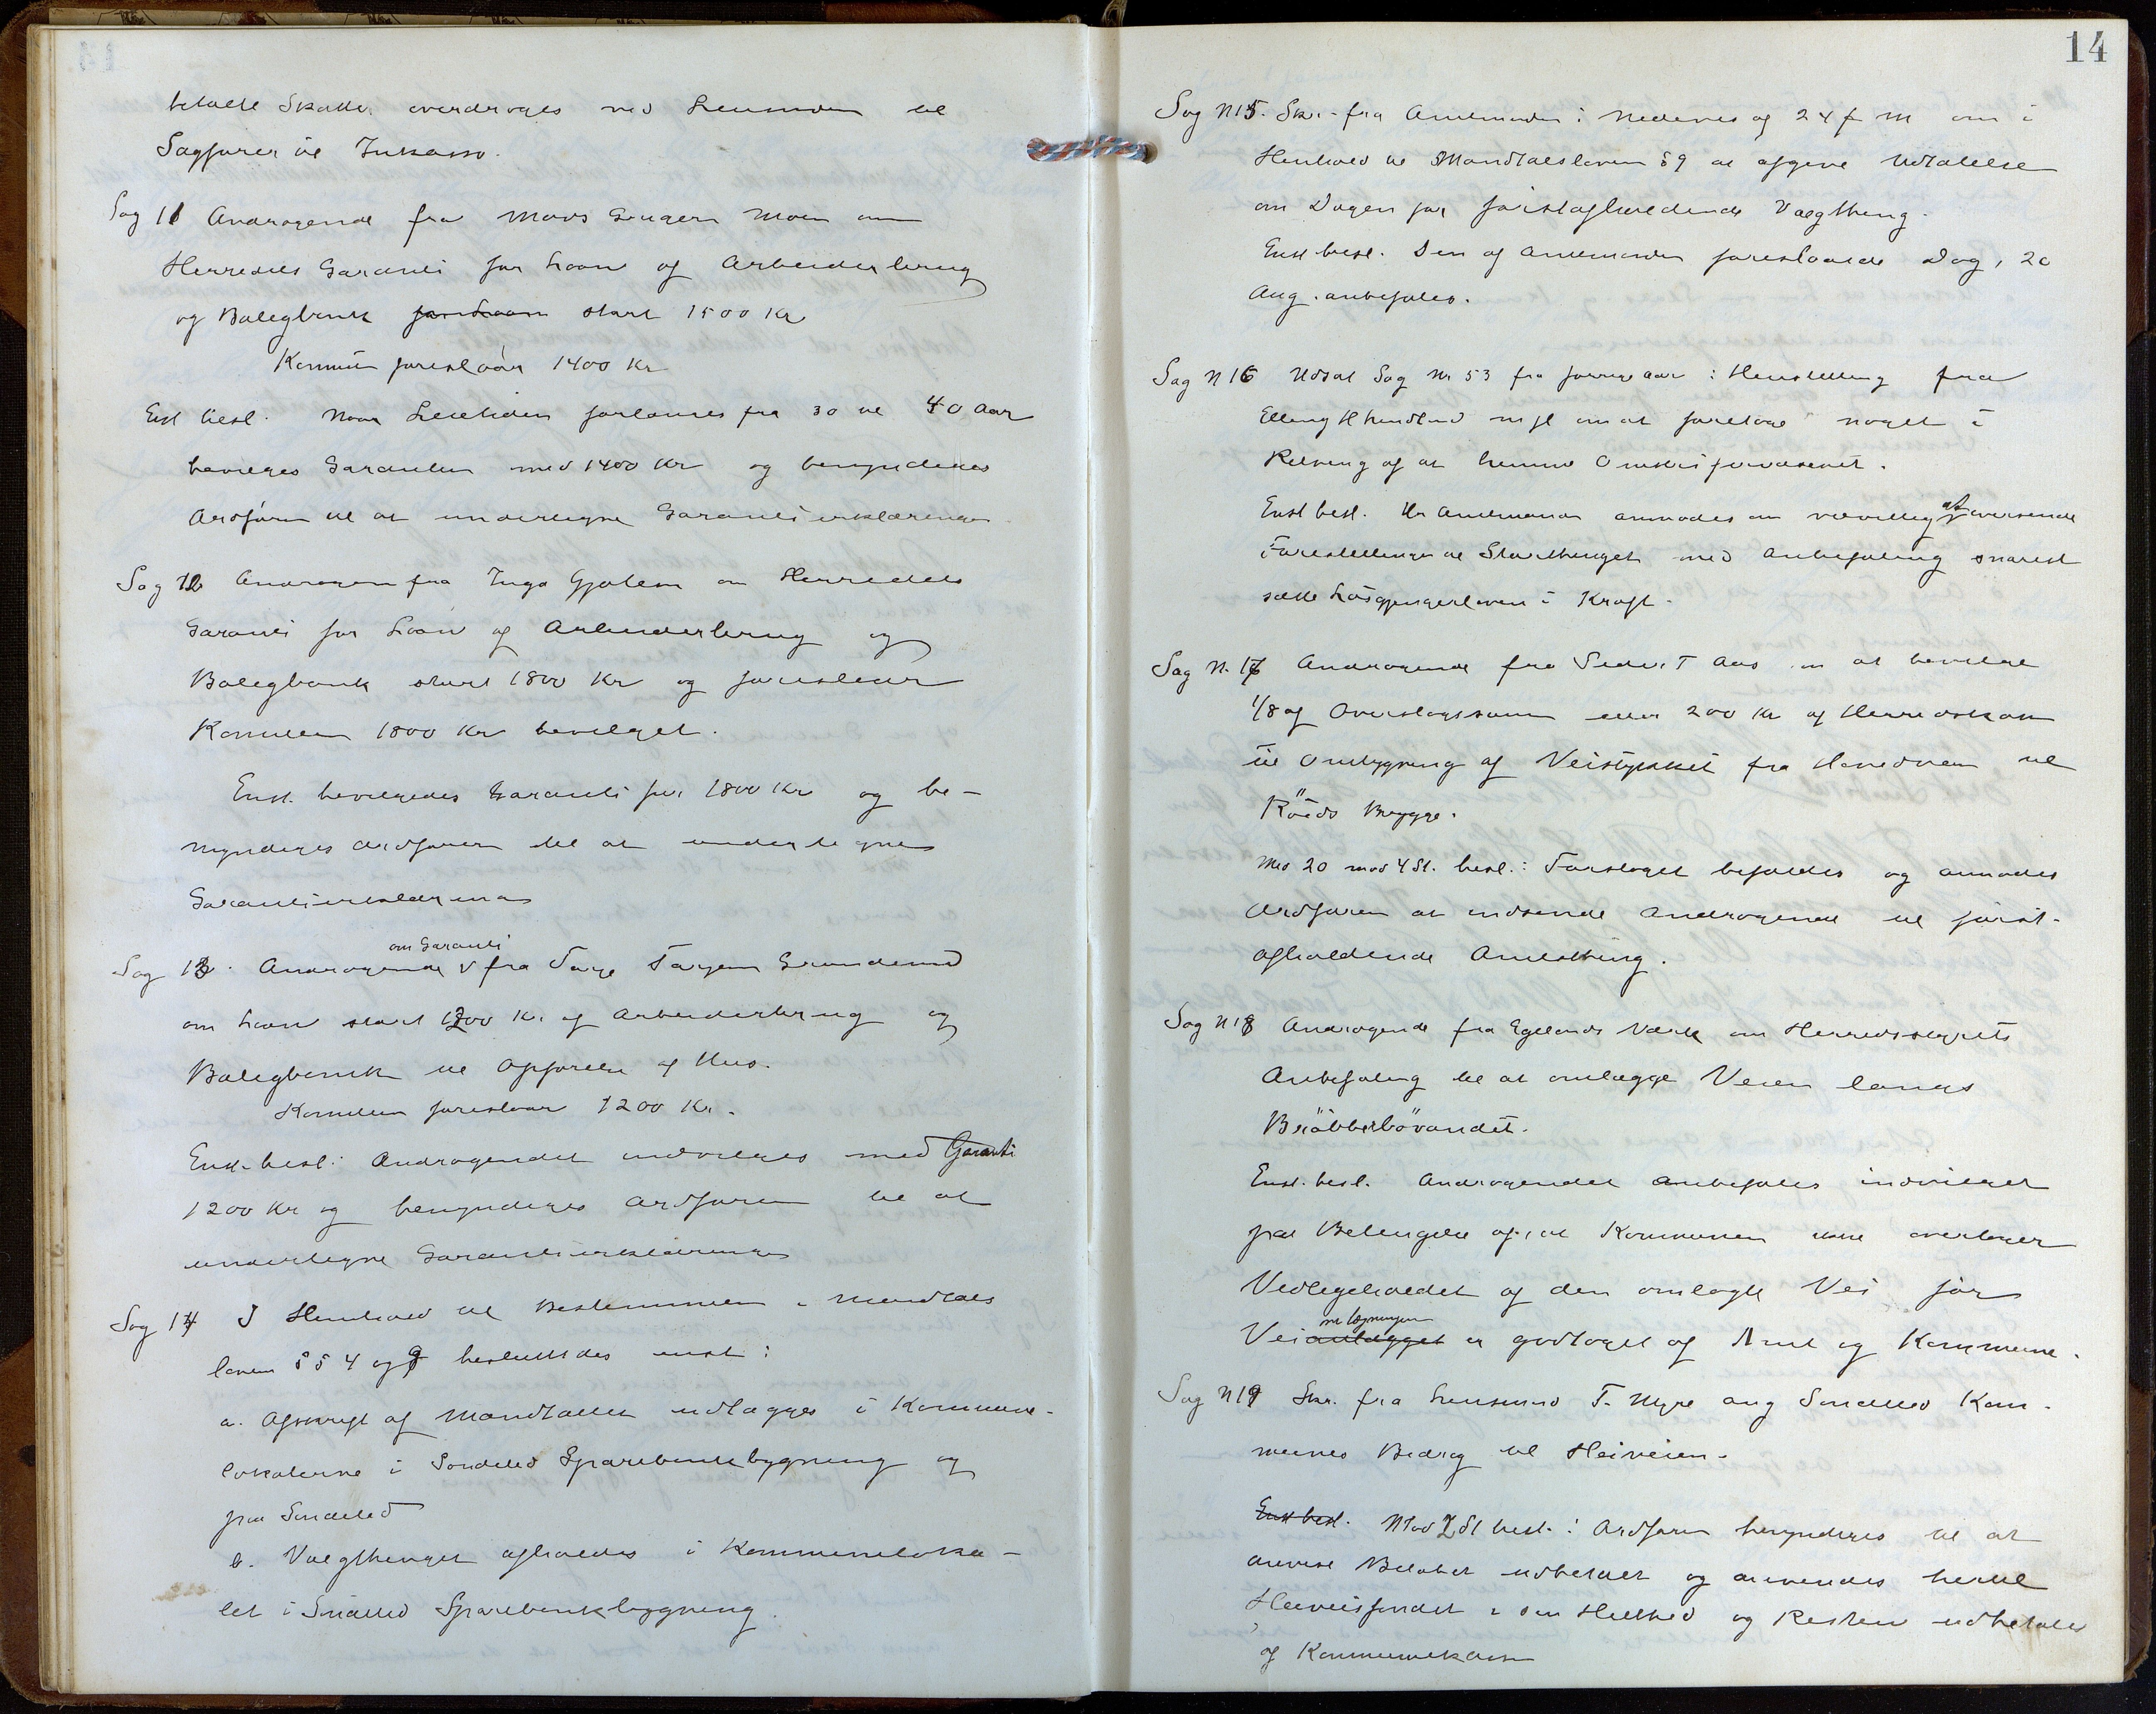 betalte Skatter overdrages ved Lensmanden til
Sagfører til Inkasso.
Sag 11 Andragende fra Mads Moen om
Herredets Garanti for Laan af Arbeiderbrug
og Boligbank for Laan stort 1500 Kr
Komiteen foreslaar 1400 Kr
Enst besl. Naar Levetiden forlænges fra 30 til 40 Aar
bevilges Garantien med 1400 Kr og bemyndiges
Ordføren til at undertegne Garantierklæringen
Sag 12 Andragende fra Inga Gjølem om Herredets
Garanti for Laan af Arbeiderbrug og
Boligbank stort 1800 Kr og foreslaar
Komiteen 1800 Kr bevilget.
Enst. bevilgedes Garanti for 1800 Kr og be-
myndiges Ordføreren til at undertegne
Garantierklæringen
Sag 13. Andragende om Garanti fra Tarje Terjesen
om Laan stort 1200 Kr af Arbeiderbrug og
Boligbank til Opførelse af Hus.
Komiteen foreslaar 1200 Kr.
Enst. besl: Andragendet indvilges med Garanti
1200 Kr og bemyndiges Ordføren til at
undertegne Garantierklæringen
Sag 14 I Henhold til Bestemmelsen i Mandtals
loven §§ 4 og 9 besluttedes enst:
a. Afskrift af Mandtallet udlægges i Kommune-
lokalerne i Søndeled Sparebankbygning og
paa Søndeled
b. Valgthinget afholdes i Kommuneloka-
let i Søndeled Sparebankbygning.
14
Sag N 15. Skr. fra Amtmanden i Nedenes af 24 f M om i
Henhold til Mandtalsloven §9 at afgive Udtalelse
om Dagen for førstafholdende Valgthing.
Enst besl. Den af Amtmanden foreslaaede Dag, 20
Aug. anbefales.
Sag N 16 Udsat Sag Nr 53 fra forrige Aar: Henstilling fra
Elling H m fl om at foretage noget i
Retning af at hemme Omstreifervæsenet.
Enst besl. Hr Amtmanden anmodes om velvillig at oversende
Forestillingen til Storthinget med Anbefaling snarest
sætte Løsgjængerloven i Kraft.
Sag N. 17 Andragende fra Peder T Aas om at bevilge
1/8 af Overslagssummen eller 200 Kr af Herredskassen
til Ombygning af Veistykket fra til
Røeds Brygge.
Med 20 mod 4 St. besl.: Forslaget befaldes og anmodes
Ordføren at indsende Andragende til først-
afholdende Amtsthing.
Sag N 18 Andragende fra Egelands Værk om Herredsstyrets
Anbefaling til at omlægge Veien langs
Brøbbørvandet.
Enst. besl. Andragendet anbefales indvilget
paa Betingelse af, at Kommunen ikke overtager
Vedligeholdet af den omlagte Vei før
Veianlægget omlægningen er godtaget af Amt og Kommune.
Sag N 19 Skr. fra Lensmand T. Myre ang Søndeled Kom-
munes Bidrag til Heiveien.
Enst besl. Mod 2 St besl.: Ordføren bemyndiges til at
anvise Beløbet udbetalt og anvendes hertil
Heiveisfondet i sin Helhed og Resten udbetales
af Kommunekassen